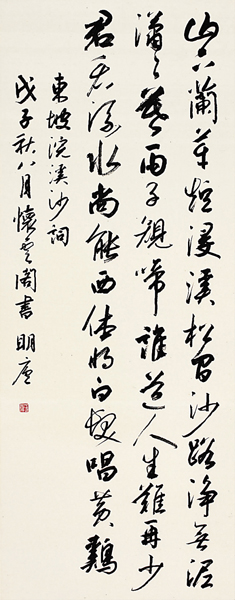 山下蘭芽短浸溪松間沙路淨無泥
瀟々暮雨子規啼誰道人生難再少
君看流水尚能西休將白髮唱黃鷄
東坡浣溪沙詞
戊子秋八月懷雲閣書 明廬